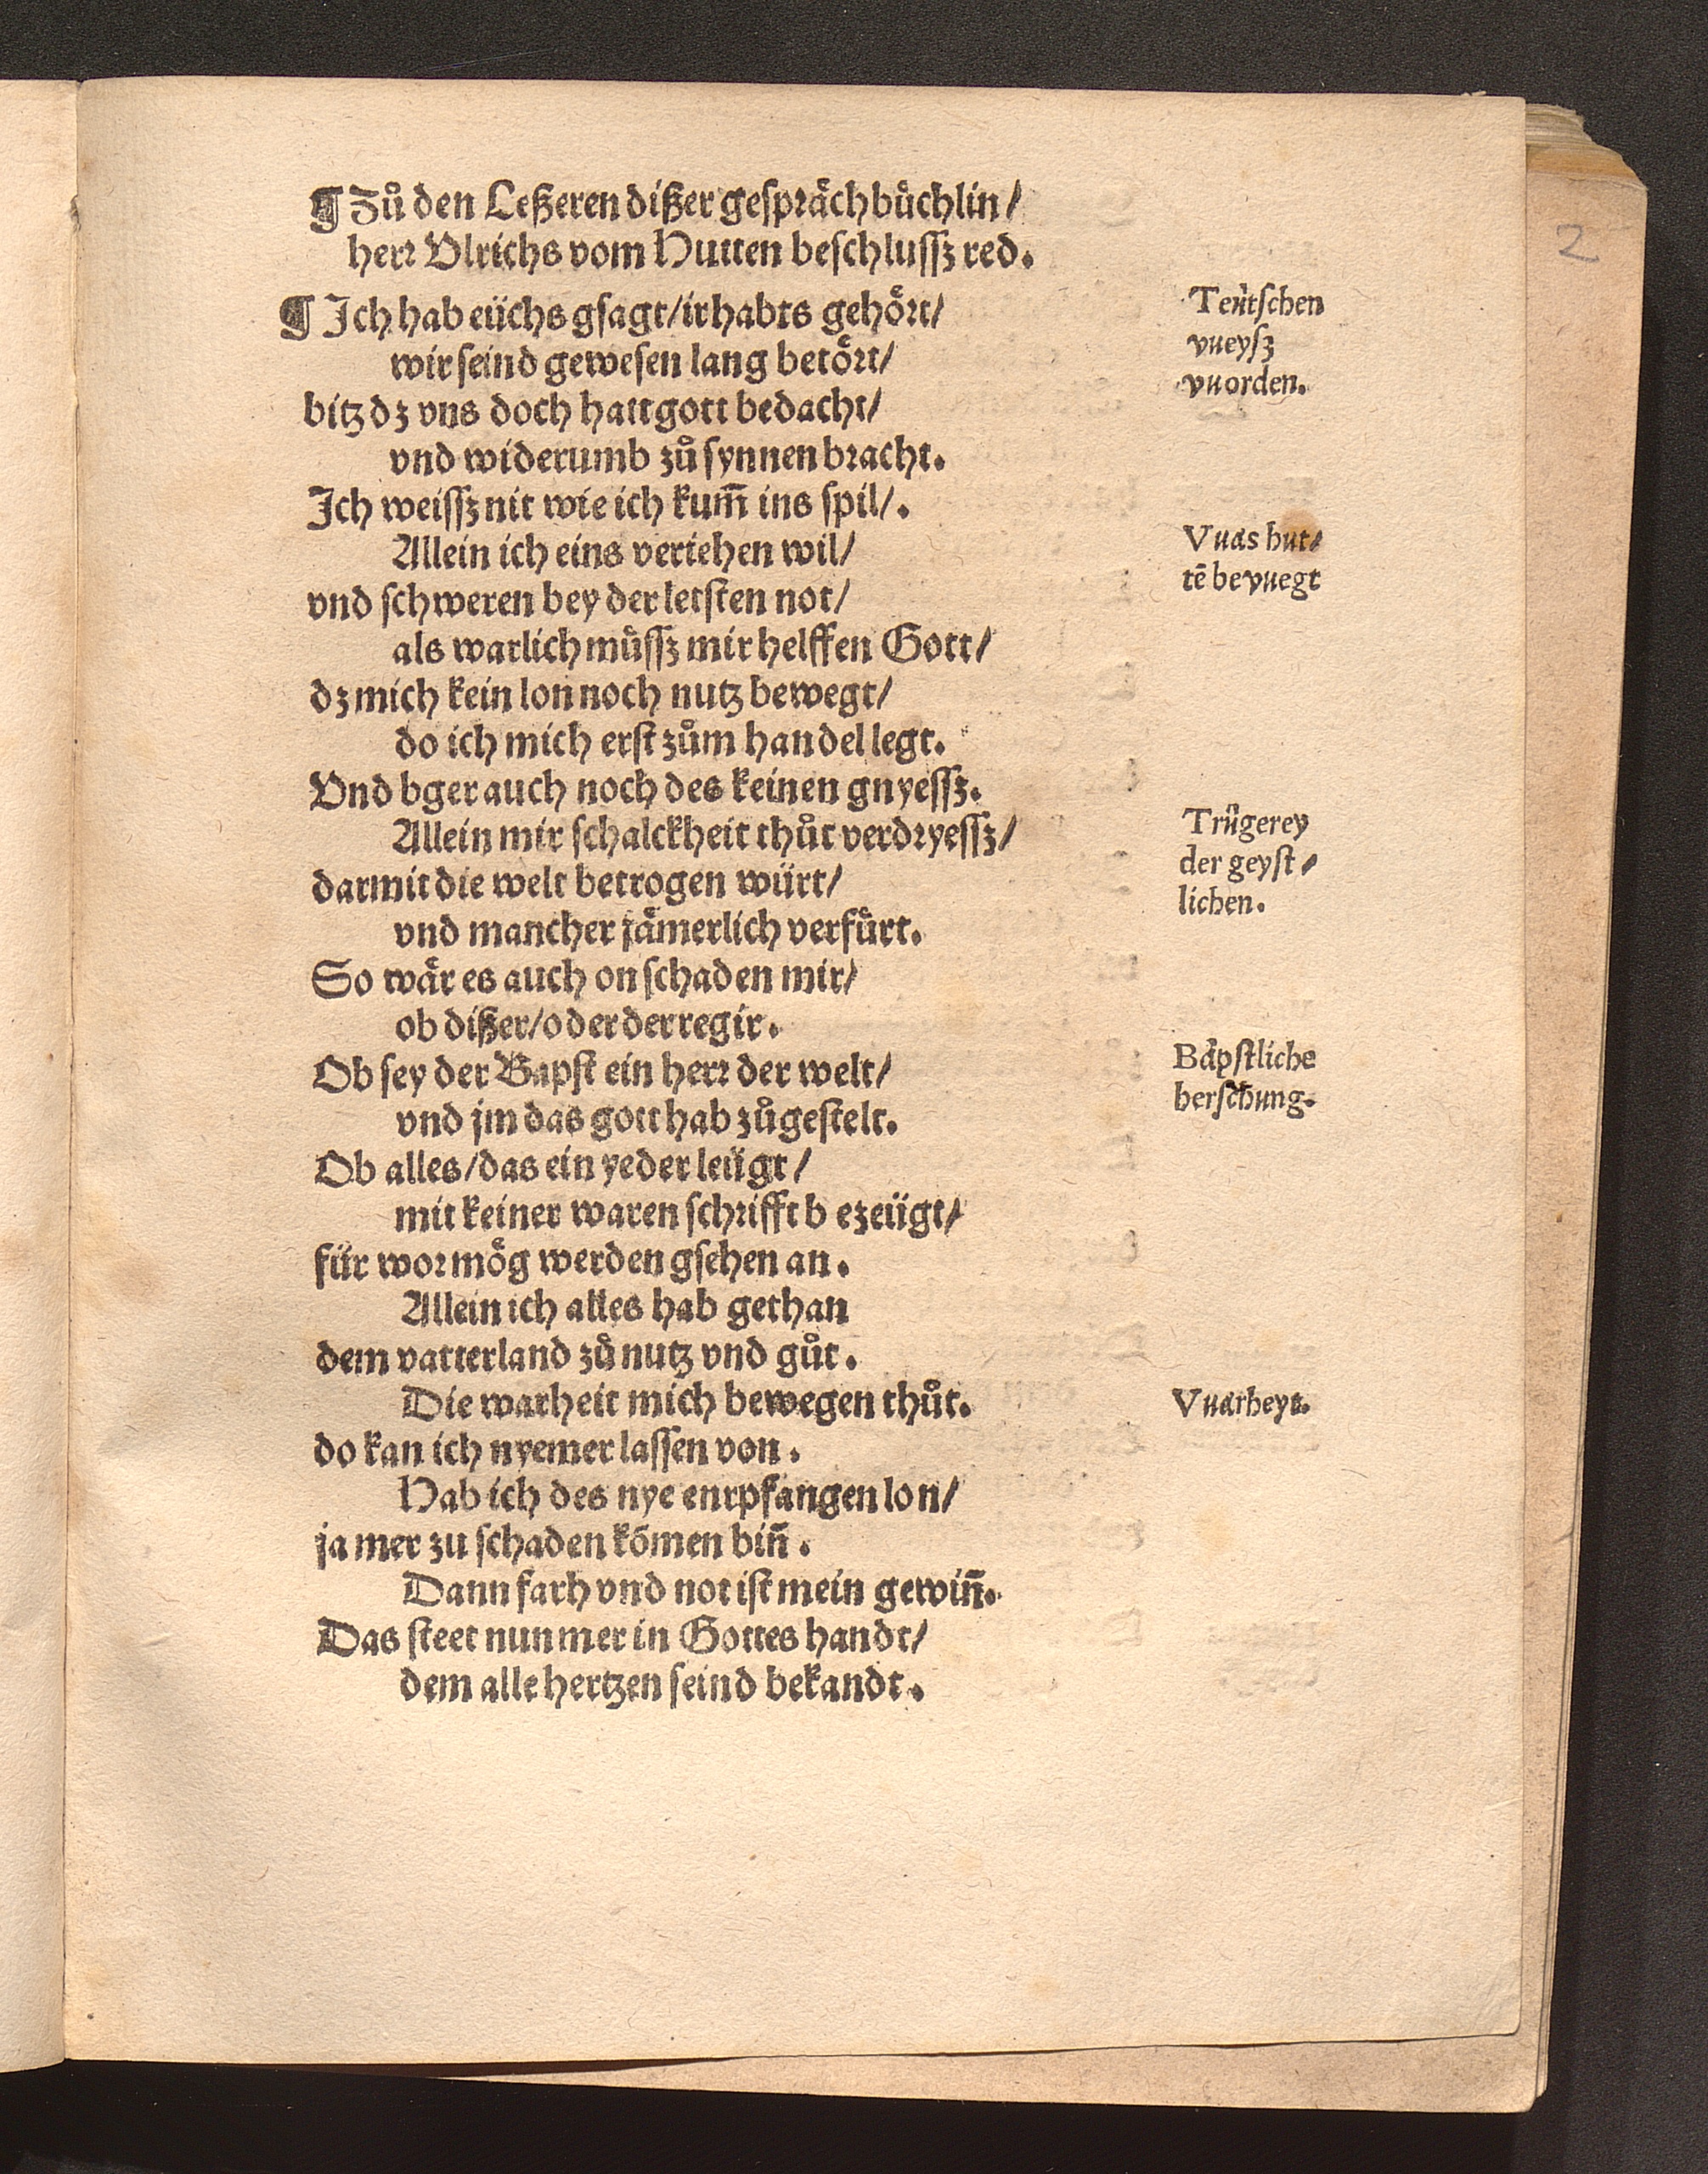 ¶ Zů den Leßeren dißer gespräch bůchlin/
herr Vlrichs vom Hutten beschlussz red.
¶ Ich hab eüchs gsagt/ir habts gehört/
wir seind gewesen lang betört/
bitz dz vns doch hatt gott bedacht/
vnd widerumb zů synnen bracht.
Ich weissz nit wie ich kum̄ ins spil/.
Allein ich eins veriehen wil/
vnd schweren bey der letsten not/
als warlich müssz mir helffen Gott/
dz mich kein lon noch nutz bewegt/
do ich mich erst zům handel legt.
Vnd bger auch noch des keinen gnyessz.
Allein mir schalckheit thůt verdryessz/
darmit die welt betrogen würt/
vnd mancher jämerlich verfürt.
So wär es auch on schaden mir/
ob dißer/oder der regir.
Ob sey der Bapst ein herr der welt/
vnd jm das gott hab zůgestelt.
Ob alles/das ein yeder leügt/
mit keiner waren schrifft b ezeügt/
für wor mög werden gsehen an.
Allein ich alles hab gethan
dem vatterland zů nutz vnd gůt.
Die warheit mich bewegen thůt.
do kan ich nyemer lassen von.
Hab ich des nye enrpfangen lon/
ja mer zu schaden kōmen biñ.
Dann farh vnd not ist mein gewiñ.
Das steet nun mer in Gottes handt/
dem alle hertzen seind bekandt.
Teütschen
vueysz
vuorden.
Vuas hut/
tē bevuegt
Trügerey
der geyst/
lichen.
Bäpstliche
herschung.
Vuarheyt.
2